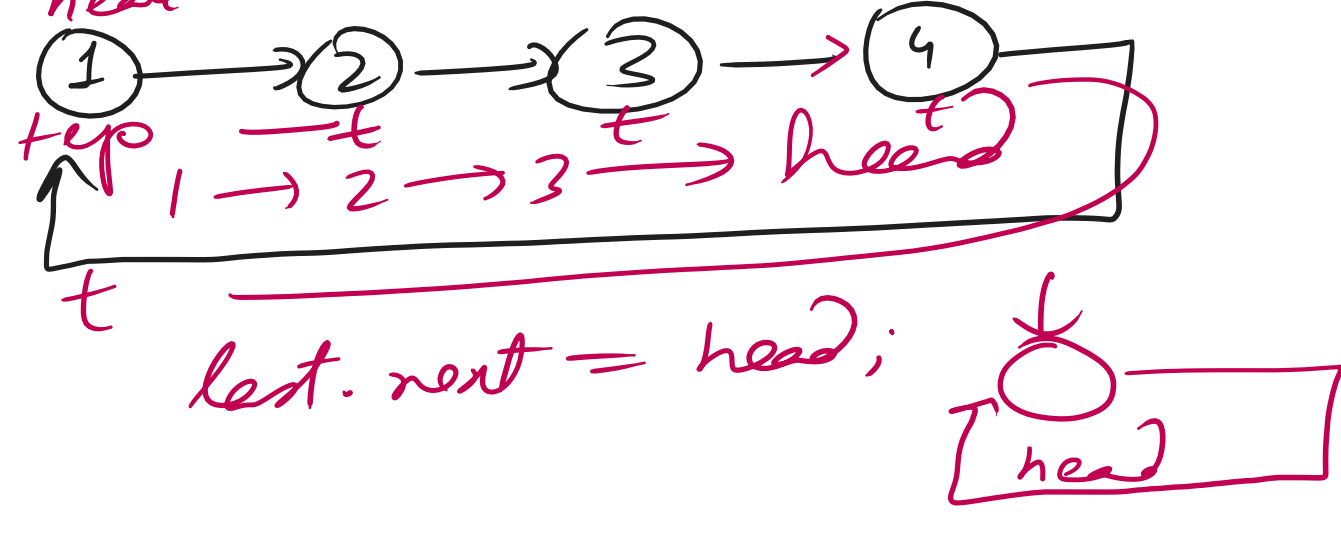 head
1 → 2 → 3 → 4
tep t t t
1 → 2 → 3 → head
t
last.next = head;
head